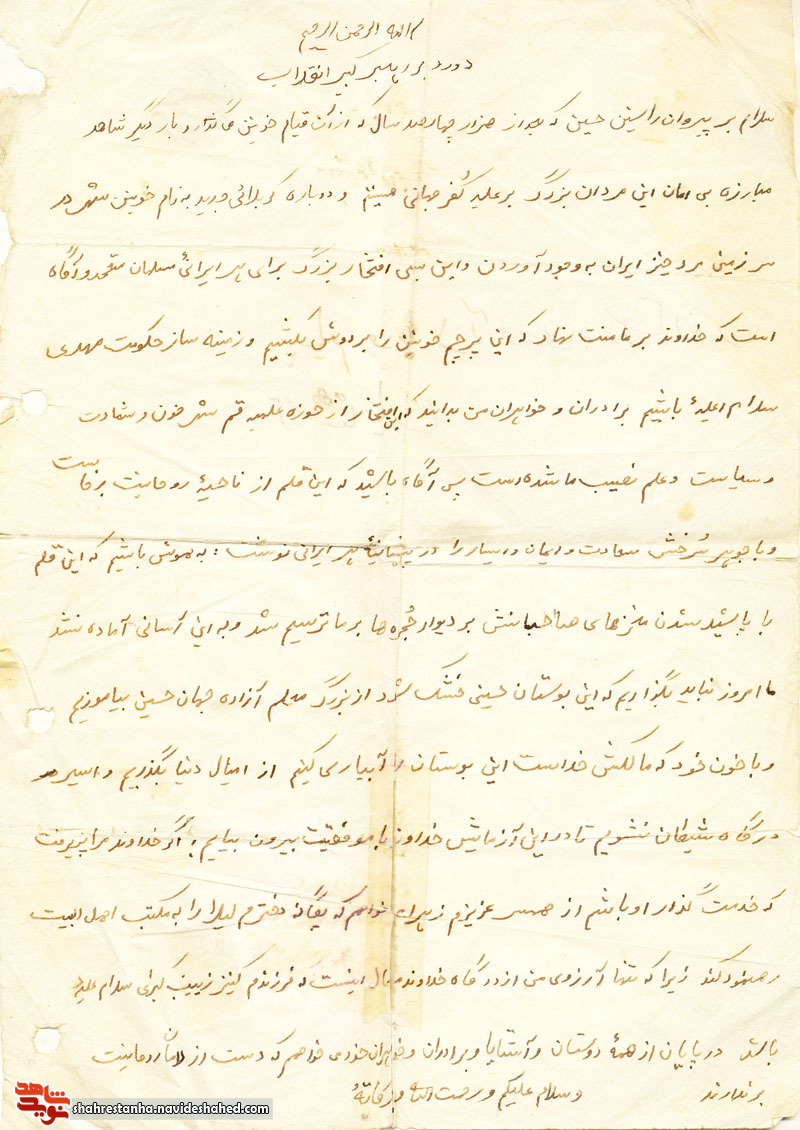 بسم الله الرحمن الرحیم
درود بر رهبر کبیر انقلاب
سلام بر پیروان راستین حسین که بعد از هزار چهارصد سال که از آن قیام خونین میگذرد بار دیگر شاهد
مبارزه بی امان این مردان بزرگ بر علیه کفر جهانی هستیم و دوباره کربلائی جدید به نام خونین شهر در
سرزمین مردخیز ایران به وجود آوردن و این بسی افتخار بزرگ برای هر ایرانی مسلمان متعهد و آگاه
است که خداوند بر ما منت نهاد که این پرچم خونین را بر دوش بکشیم و زمینه ساز حکومت مهدی
سلام اعلیه باشیم برادران و خواهران من بدانید که این افتخار از حوزه علمیه قم شهر خون و شهادت
و سیاست و علم نصیب ما شده است پس آگاه باشید که این قلم از ناحیۀ روحانیت برخاست
و با جوهر سرخش سعادت و ایمان و ایثار را در پیشانیۀ هر ایرانی نوشت: به هوش باشیم که این قلم
با پاشیده شدن مغزهای صاحبانش بر دیوار حجره ها بر ما ترسیم شد و به این آسانی آماده نشد
ما امروز نباید بگذاریم که این بوستان حسینی خشک شود از بزرگ معلم آزاده جهان حسین بیاموزیم
و با خون خود که مالکش خداست این بوستان را آبیاری کنیم از امیال دنیا بگذریم و اسیر
درگاه شیطان نشویم تا در این آزمایش خداوند با موفقیت بیرون بیایم، اگر خداوند مرا پذیرفت
که خدمت گذار او باشم از همسر عزیزم زهرا می خواهم که یگانه دخترم لیلا را به مکتب اهل البیت
رهنمود کند زیرا که تنها آرزوی من از درگاه خداوند متعال اینست که فرزندم کنیز زینب کبرای سلام علیها
باشد در پایان از همۀ دوستان و آشنایا و برادران و خواهران خودم می خواهم که دست از دامان روحانیت
برندارند وسلام علیکم و رحمت الله و برکاتۀ
شاهد
نوید
shahrestanha.navideshahed.com